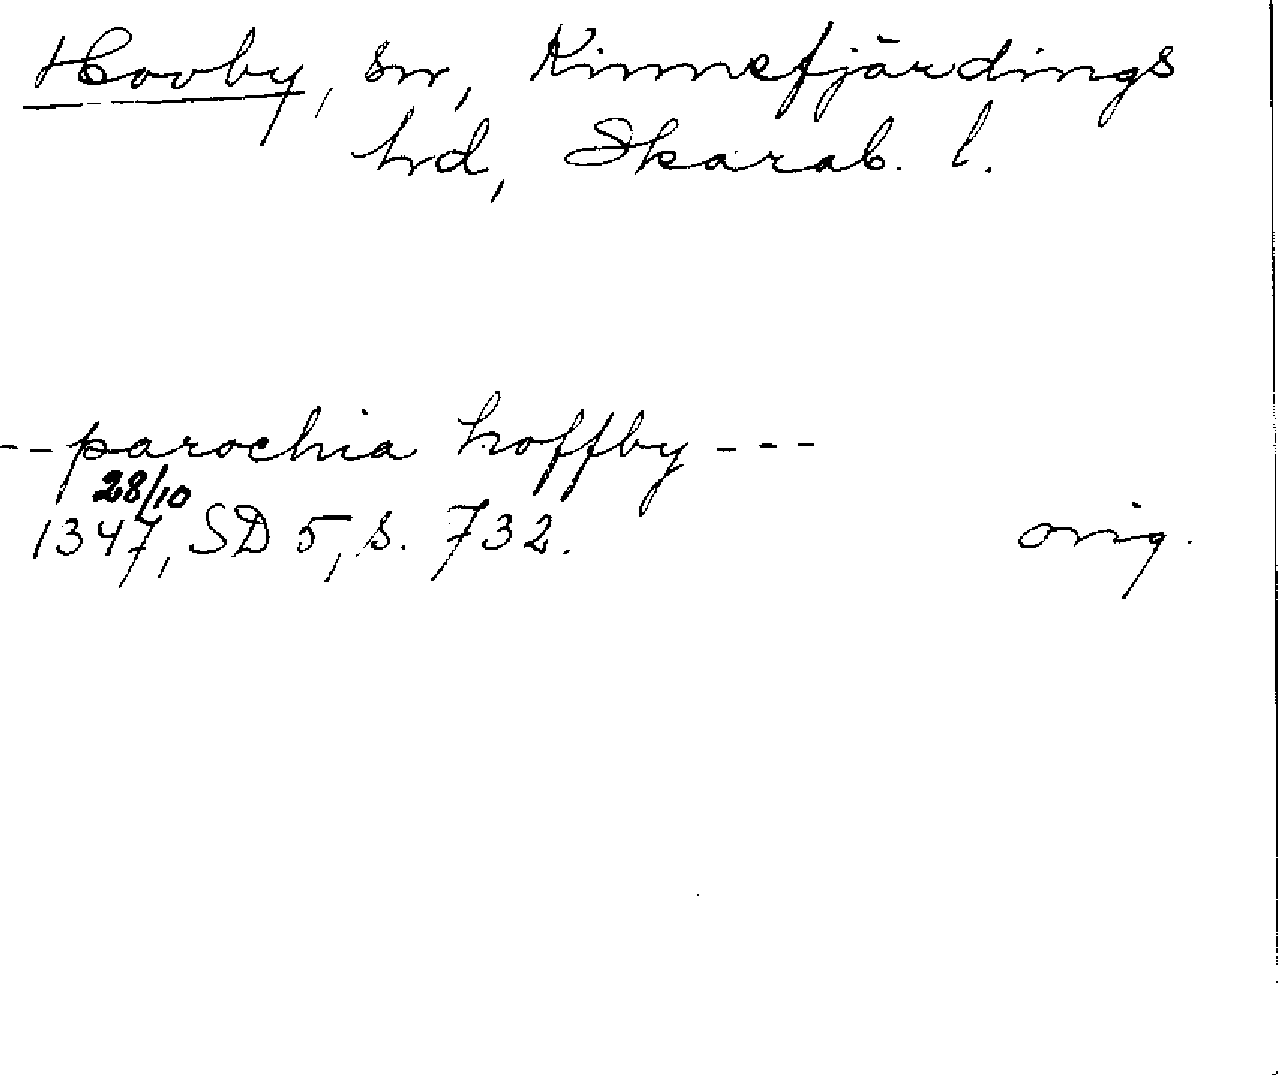 Hovby, sn, Kinnefjärdings
hd, Skarab. l.
-- parochia hoffby ---
28/10
1347, SD 5, s. 732. orig.